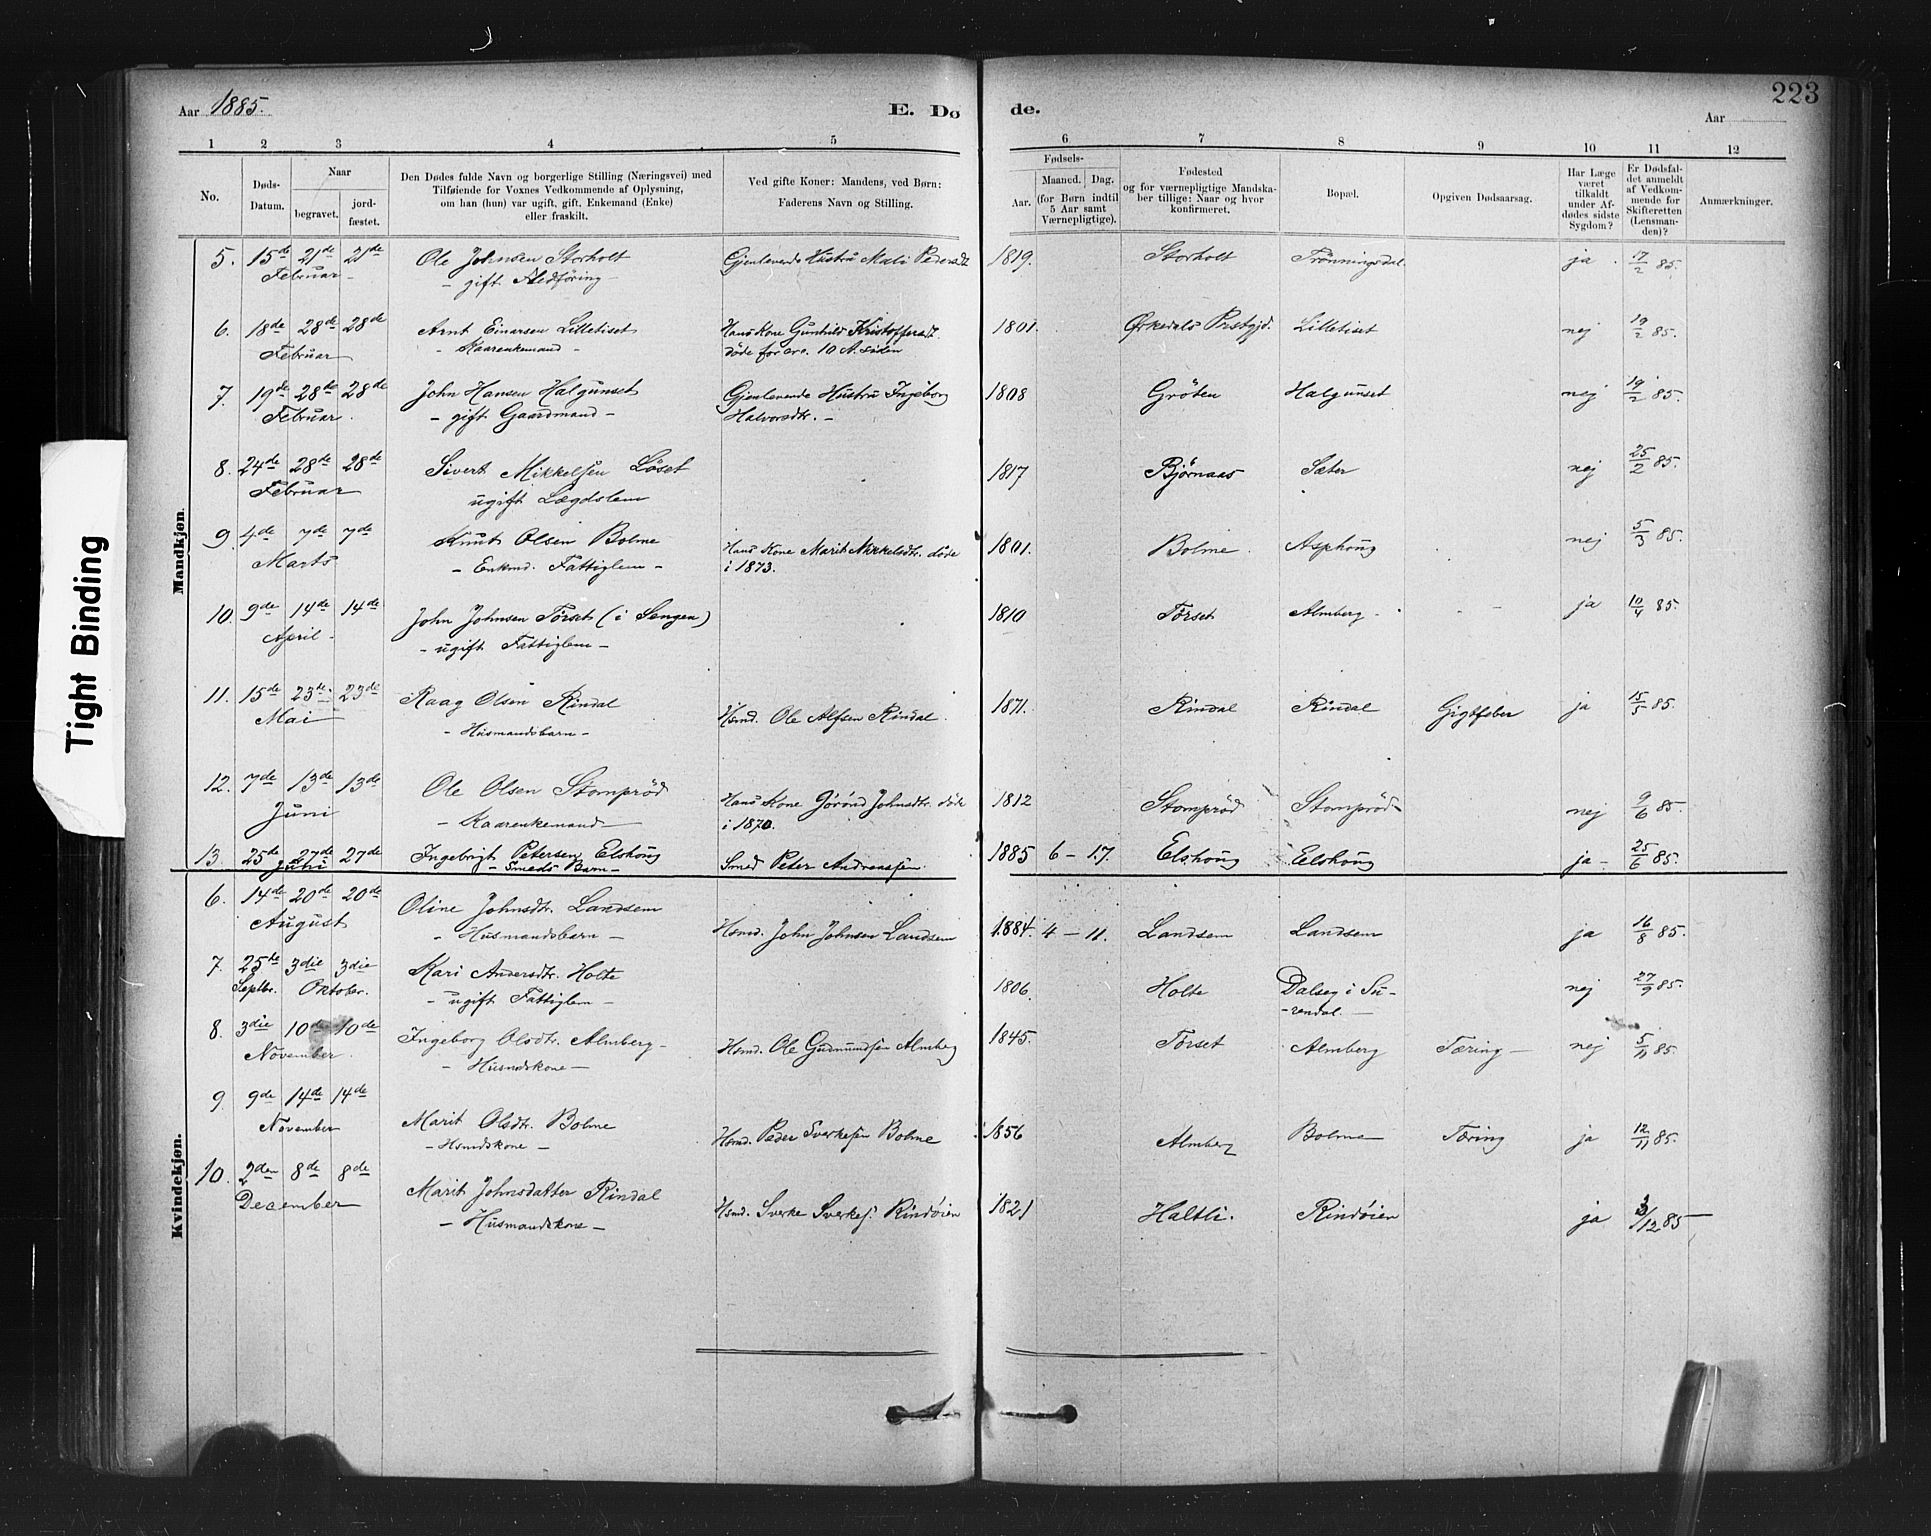 223
Aar 1885.
E. Dø
de.
Aar
1 2 3 4 5 6 7 8 9 10 11 12
No.
Døds-Datum.
Naar
begravet.
jord-fæstet.
Den Dødes fulde Navn og borgerlige Stilling (Næringsvei) med
Tilføiende for Voxnes Vedkommende af Oplysning,
om han (hun) var ugift, gift, Enkemand (Enke)
eller fraskilt.
Ved gifte Koner: Mandens, ved Børn:
Faderens Navn og Stilling.
Fødsels-
Aar.
Maaned. Dag.
(for Børn indtil
5 Aar samt
Værnepligtige).
Fødested
og for værnepligtige Mandska-
ber tillige: Naar og hvor
konfirmeret.
Bopæl.
Opgiven Dødsaarsag.
Har Læge
været
tilkaldt
under Af-
dødes sidste
Sygdom?
Er Dødsfal-
det anmeldt
af Vedkom-
mende for
Skifteretten
(Lensman-
den)?
Anmærkninger.
Mandkjøn.
5. 15de 21de 21de Ole Johnsen Storholt Gjenlevende Hustru Mali Pedersdt 1819. Storholt Trönningsdal. ja 17/2 85.
Februar - gift Aedföring -
6. 18de 28de 28de Arnt Einarsen Lilletiset Hans Kone Gunhild Kristoffersdt. 1801. Ørkedals Prstgjd. Lilletiset nej 19/2 85.
Februar - Kaarenkemand - döde for crc. 10 A. siden
7. 19de 28de 28de John Hansen Halgunset Gjenlevende Hustru Ingeborg 1808 Gröten Halgunset nej 19/2 85.
Februar. - gift Gaardmand - Halvorsdtr. -
8. 24de 28de 28de Sivert Mikkelsen Löset 1817 Bjørnaas Sæter nej 25/2 85.
Februar ugift Lægdslem
9. 4de 7de 7de Knut Olsen Bolme Hans Kone Marit Mikkelsdtr. döde 1801. Bolme. Asphoug nej 5/3 85.
Marts - Enkmd. Fattiglem - i 1873.
10. 9de 14de 14de John Johnsen Törset (i Sengen) 1810 Törset Almberg. ja 10/4 85.
April - ugift Fattiglem -
11. 15de 23de 23de Raag Olsen Rindal Hsmd. Ole Alfsen Rindal. 1871. Rindal Rindal Gigtfeber ja 15/5 85.
Mai - Husmandsbarn -
12. 7de 13de 13de Ole Olsen Stompröd Hans Kone Görönd Johnsdtr. döde 1812 Stompröd Stompröd nej 9/6 85.
Juni - Kaarenkemand - i 1870.
13. 25de 27de 27de Ingebrigt Petersen Elshoug Smed Peter Andreassen 1885 6 - 17. Elshoug Elshoug ja - 25/6 85.
Juni - Smeds Barn -
Kvindekjøn.
6. 14de 20de 20de Oline Johnsdtr. Landsem Hsmd. John Johnsen Landsem 1884. 4 - 11. Landsem Landsem ja 16/8 85.
August - Husmandsbarn -
7. 25de 3die 3die Kari Andersdtr. Holte 1806. Holte Dalseg i Su- nej 27/9 85.
Septbr. Oktober. - ugift Fattiglem - -rendal. -
8. 3die 10de 10de Ingeborg Olsdtr. Almberg - Hsmd. Ole Gudmundsen Almberg 1845. Törset Almberg Tæring - nej 5/11 85.
November. - Husmdskone -
9. 9de 14de 14de Marit Olsdtr. Bolme Hsmd. Peder Sverkesen Bolme 1856 Almberg Bolme Tæring ja 12/11 85.
November - Hsmdskone -
10. 2den 8de 8de Marit Johnsdatter Rindal Hsmd. Sverke Sverkes. Rindöien 1821 Haltli. Rindöien ja 3/12 85
December - Husmandskone -
Tight Binding